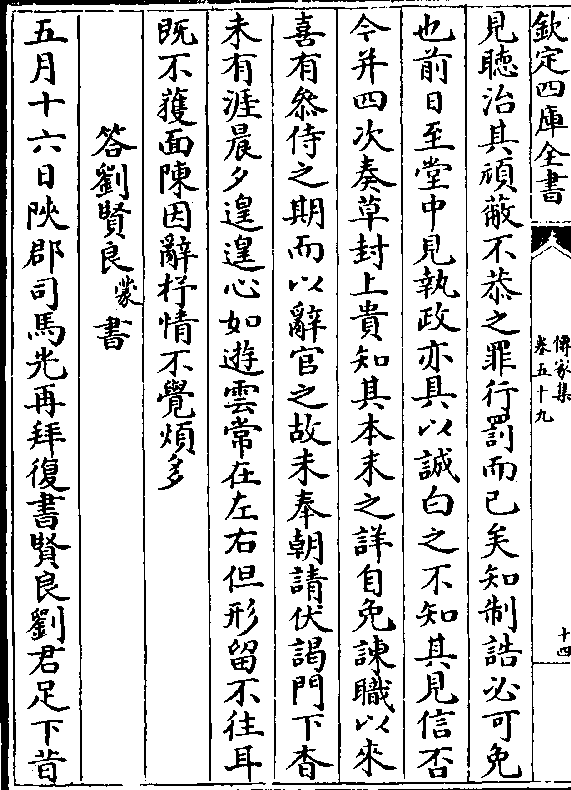 欽定四庫全書
傳家集
卷五十九
十四
見聽治其頑蔽不恭之罪行罰而已矣知制誥必可免
也前日至堂中見執政亦具以誠白之不知其見信否
今并四次奏草封上貴知其本末之詳自免諫職以來
喜有叅侍之期而以辭官之故未奉朝請伏謁門下杳
未有涯晨夕遑遑心如遊雲常在左右但形留不往耳
既不獲面陳因辭抒情不覺煩多
答劉賢良蒙書
五月十六日陜郡司馬光再拜復書賢良劉君足下昔